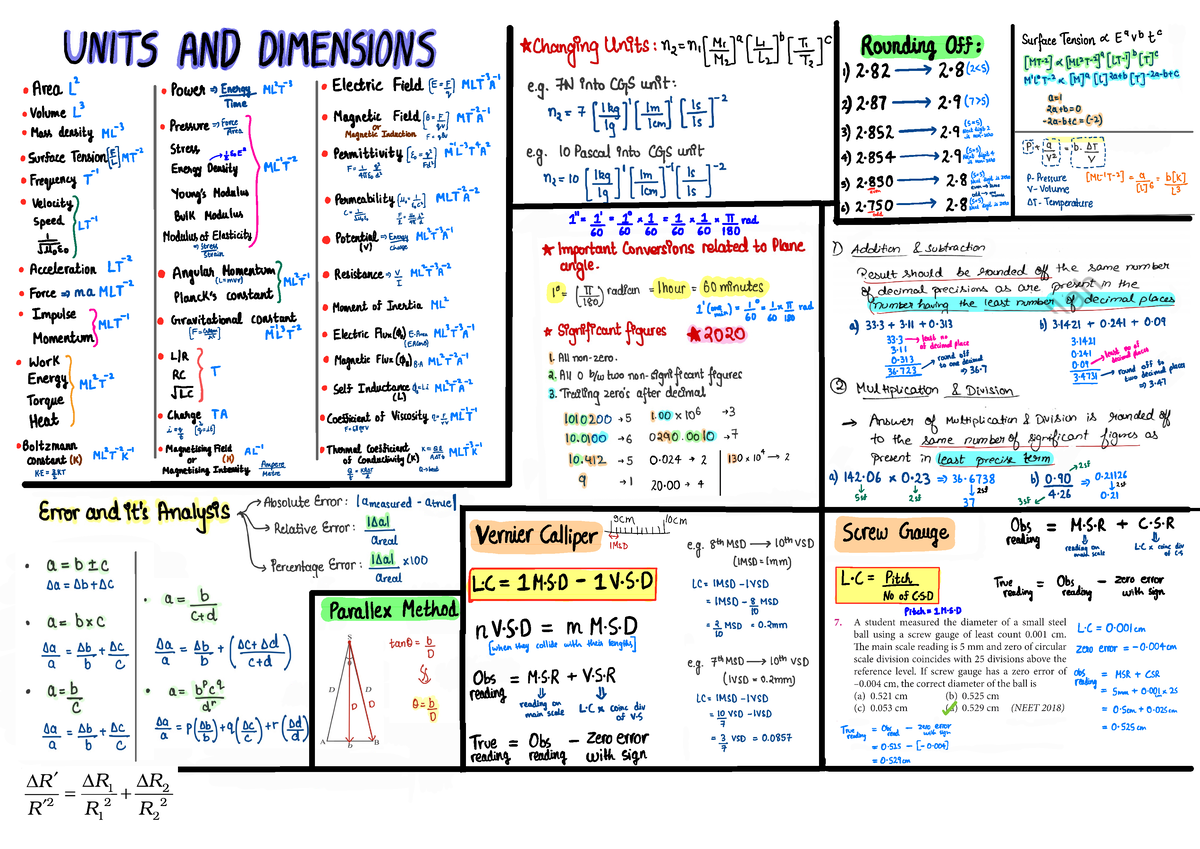 UNITS AND DIMENSIONS
• Area L²
• Volume L³
• Mass density ML⁻³
• Surface Tension [F/L] MT⁻²
• Frequency T⁻¹
• Velocity
Speed
1/√μ₀ε₀
LT⁻¹
• Acceleration LT⁻²
• Force ⇒ ma MLT⁻²
• Impulse
Momentum
MLT⁻¹
• Work
Energy
Torque
Heat
ML²T⁻²
• Boltzmann constant (K) ML²T⁻²K⁻¹
KE = 3/2 KT
• Power ⇒ Energy/Time ML²T⁻³
• Pressure ⇒ Force/Area
Stress
Energy Density → ½ε₀E²
Young's Modulus
Bulk Modulus
Modulus of Elasticity
⇒ Stress/Strain
ML⁻¹T⁻²
• Angular Momentum (L=mvr)
Planck's constant
ML²T⁻¹
• Gravitational constant
M⁻¹L³T⁻²
• L/R
RC
√LC
T
• Charge TA
• Magnetising Field
or (H) AL⁻¹
Magnetising Intensity Ampere/Metre
• Electric Field [E=F/q] MLT⁻³A⁻¹
• Magnetic Field [B=F/qv] MT⁻²A⁻¹
or
Magnetic Induction F=qvB
• Permittivity M⁻¹L⁻³T⁴A²
• Permeability MLT⁻²A⁻²
• Potential ⇒ Energy/Charge ML²T⁻³A⁻¹
(V)
• Resistance ⇒ V/I ML²T⁻³A⁻²
• Moment of Inertia ML²
• Electric Flux(ϕ) E·Area ML³T⁻³A⁻¹
• Magnetic Flux (ϕB) B·A ML²T⁻²A⁻¹
• Self Inductance ϕ=Li ML²T⁻²A⁻²
(L)
• Coefficient of Viscosity ML⁻¹T⁻¹
• Thermal Coefficient of Conductivity (K) MLT⁻³K⁻¹
Q→heat
★ Changing Units: n₂=n₁[M₁/M₂]ᵃ[L₁/L₂]ᵇ[T₁/T₂]ᶜ
e.g. 7N into CGS unit:
n₂ = 7 [1kg/1g]¹ [1m/1cm]¹ [1s/1s]⁻²
e.g. 10 Pascal into CGS unit
n₂ = 10 [1kg/1g]¹ [1m/1cm]⁻¹ [1s/1s]⁻²
1" = 1'/60 = 1°/60 × 1/60 = 1/60 × 1/60 × π/180 rad
★ Important Conversions related to Plane angle.
1° = (π/180) radian = 1hour = 60 minutes
1'(one min) = 1°/60 = 1/60 × π/180 rad
★ Significant figures ★2020
1. All non-zero.
2. All 0 b/w two non-significant figures
3. Trailing zero's after decimal
1010200 →5 1.00 × 10⁶ →3
10.0100 →6 0290.0010 →7
10.412 →5 0.024 → 2 130 × 10⁴ → 2
9 →1 20.00 → 4
Rounding Off:
1) 2.82 → 2.8 (2<5)
2) 2.87 → 2.9 (7>5)
3) 2.852 → 2.9 (5=5)
4) 2.854 → 2.9 (5=5)
5) 2.850 → 2.8 (5=5)
even
6) 2.750 → 2.8 (5=5)
odd
Surface Tension ∝ Eᵃ vᵇ tᶜ
[MT⁻²] ∝ [ML²T⁻²]ᵃ [LT⁻¹]ᵇ [T]ᶜ
M¹L⁰T⁻² ∝ [M]ᵃ [L]²ᵃ⁺ᵇ [T]⁻²ᵃ⁻ᵇ⁺ᶜ
a=1
2a+b=0
-2a-b+c = (-2)
P + a/V² = b·ΔT/V
P- Pressure
V- Volume
ΔT - Temperature
[ML⁻¹T⁻²] = a/[L]⁶ = b[K]/L³
1) Addition & Subtraction
Result should be rounded off the same number
of decimal precisions as are present in the
number having the least number of decimal places
a) 33.3 + 3.11 + 0.313
33.3 → least no of decimal place
3.11
0.313
36.723 → round off to one decimal → 36.7
b) 3.1421 + 0.241 + 0.09
3.1421
0.241
0.09 → least no of decimal places
3.4731 → round off to two decimal places → 3.47
② Multiplication & Division
→ Answer of Multiplication & Division is rounded off
to the same number of significant figures as
present in least precise term
a) 142.06 × 0.23 ⇒ 36.6738
5sf 2sf ↓2sf
37
b) 0.90/4.26 ⇒ 0.21126
2sf 3sf ↓2sf
0.21
Error and it's Analysis
→ Absolute Error: |a measured - a true|
→ Relative Error: |Δa|/a real
→ Percentage Error: |Δa|/a real ×100
• a = b ± c
Δa = Δb + Δc
• a = b × c
Δa/a = Δb/b + Δc/c
• a = b/c
Δa/a = Δb/b + Δc/c
• a = b/(c+d)
Δa/a = Δb/b + (Δc+Δd/c+d)
• a = bᵖc^q/dʳ
Δa/a = p(Δb/b) + q(Δc/c) + r(Δd/d)
ΔR'/R'² = ΔR₁/R₁² + ΔR₂/R₂²
Parallex Method
S
D D
D D
A b B
tanθ = b/D
θ = b/D
Vernier Calliper
9cm 10cm
1MSD
L·C = 1 M·S·D − 1 V·S·D
n V·S·D = m M·S·D
[when they collide with their lengths]
Obs reading = M·S·R + V·S·R
reading on main scale
L·C × coinc div of V·S
True reading = Obs reading − Zero error with sign
e.g. 8th MSD → 10th VSD
(1MSD = 1mm)
LC = 1MSD − 1VSD
= 1MSD − 8/10 MSD
= 2/10 MSD = 0.2mm
e.g. 7th MSD → 10th VSD
(1VSD = 0.2mm)
LC = 1MSD − 1VSD
= 10/7 VSD − 1VSD
= 3/7 VSD = 0.0857
Screw Gauge
Obs reading = M·S·R + C·S·R
reading on main scale
L·C × coinc div of C·S
L·C = Pitch/No of C·S·D
Pitch = 1 M·S·D
True reading = Obs reading − Zero error with sign
7. A student measured the diameter of a small steel
ball using a screw gauge of least count 0.001 cm.
The main scale reading is 5 mm and zero of circular
scale division coincides with 25 divisions above the
reference level. If screw gauge has a zero error of
–0.004 cm, the correct diameter of the ball is
(a) 0.521 cm (b) 0.525 cm
(c) 0.053 cm (d) 0.529 cm (NEET 2018)
L·C = 0.001cm
Zero error = −0.004cm
Obs reading = MSR + CSR
= 5mm + 0.001 × 25
= 0.5cm + 0.025cm
= 0.525cm
True reading = Obs read − zero error with sign
= 0.525 − [−0.004]
= 0.529cm